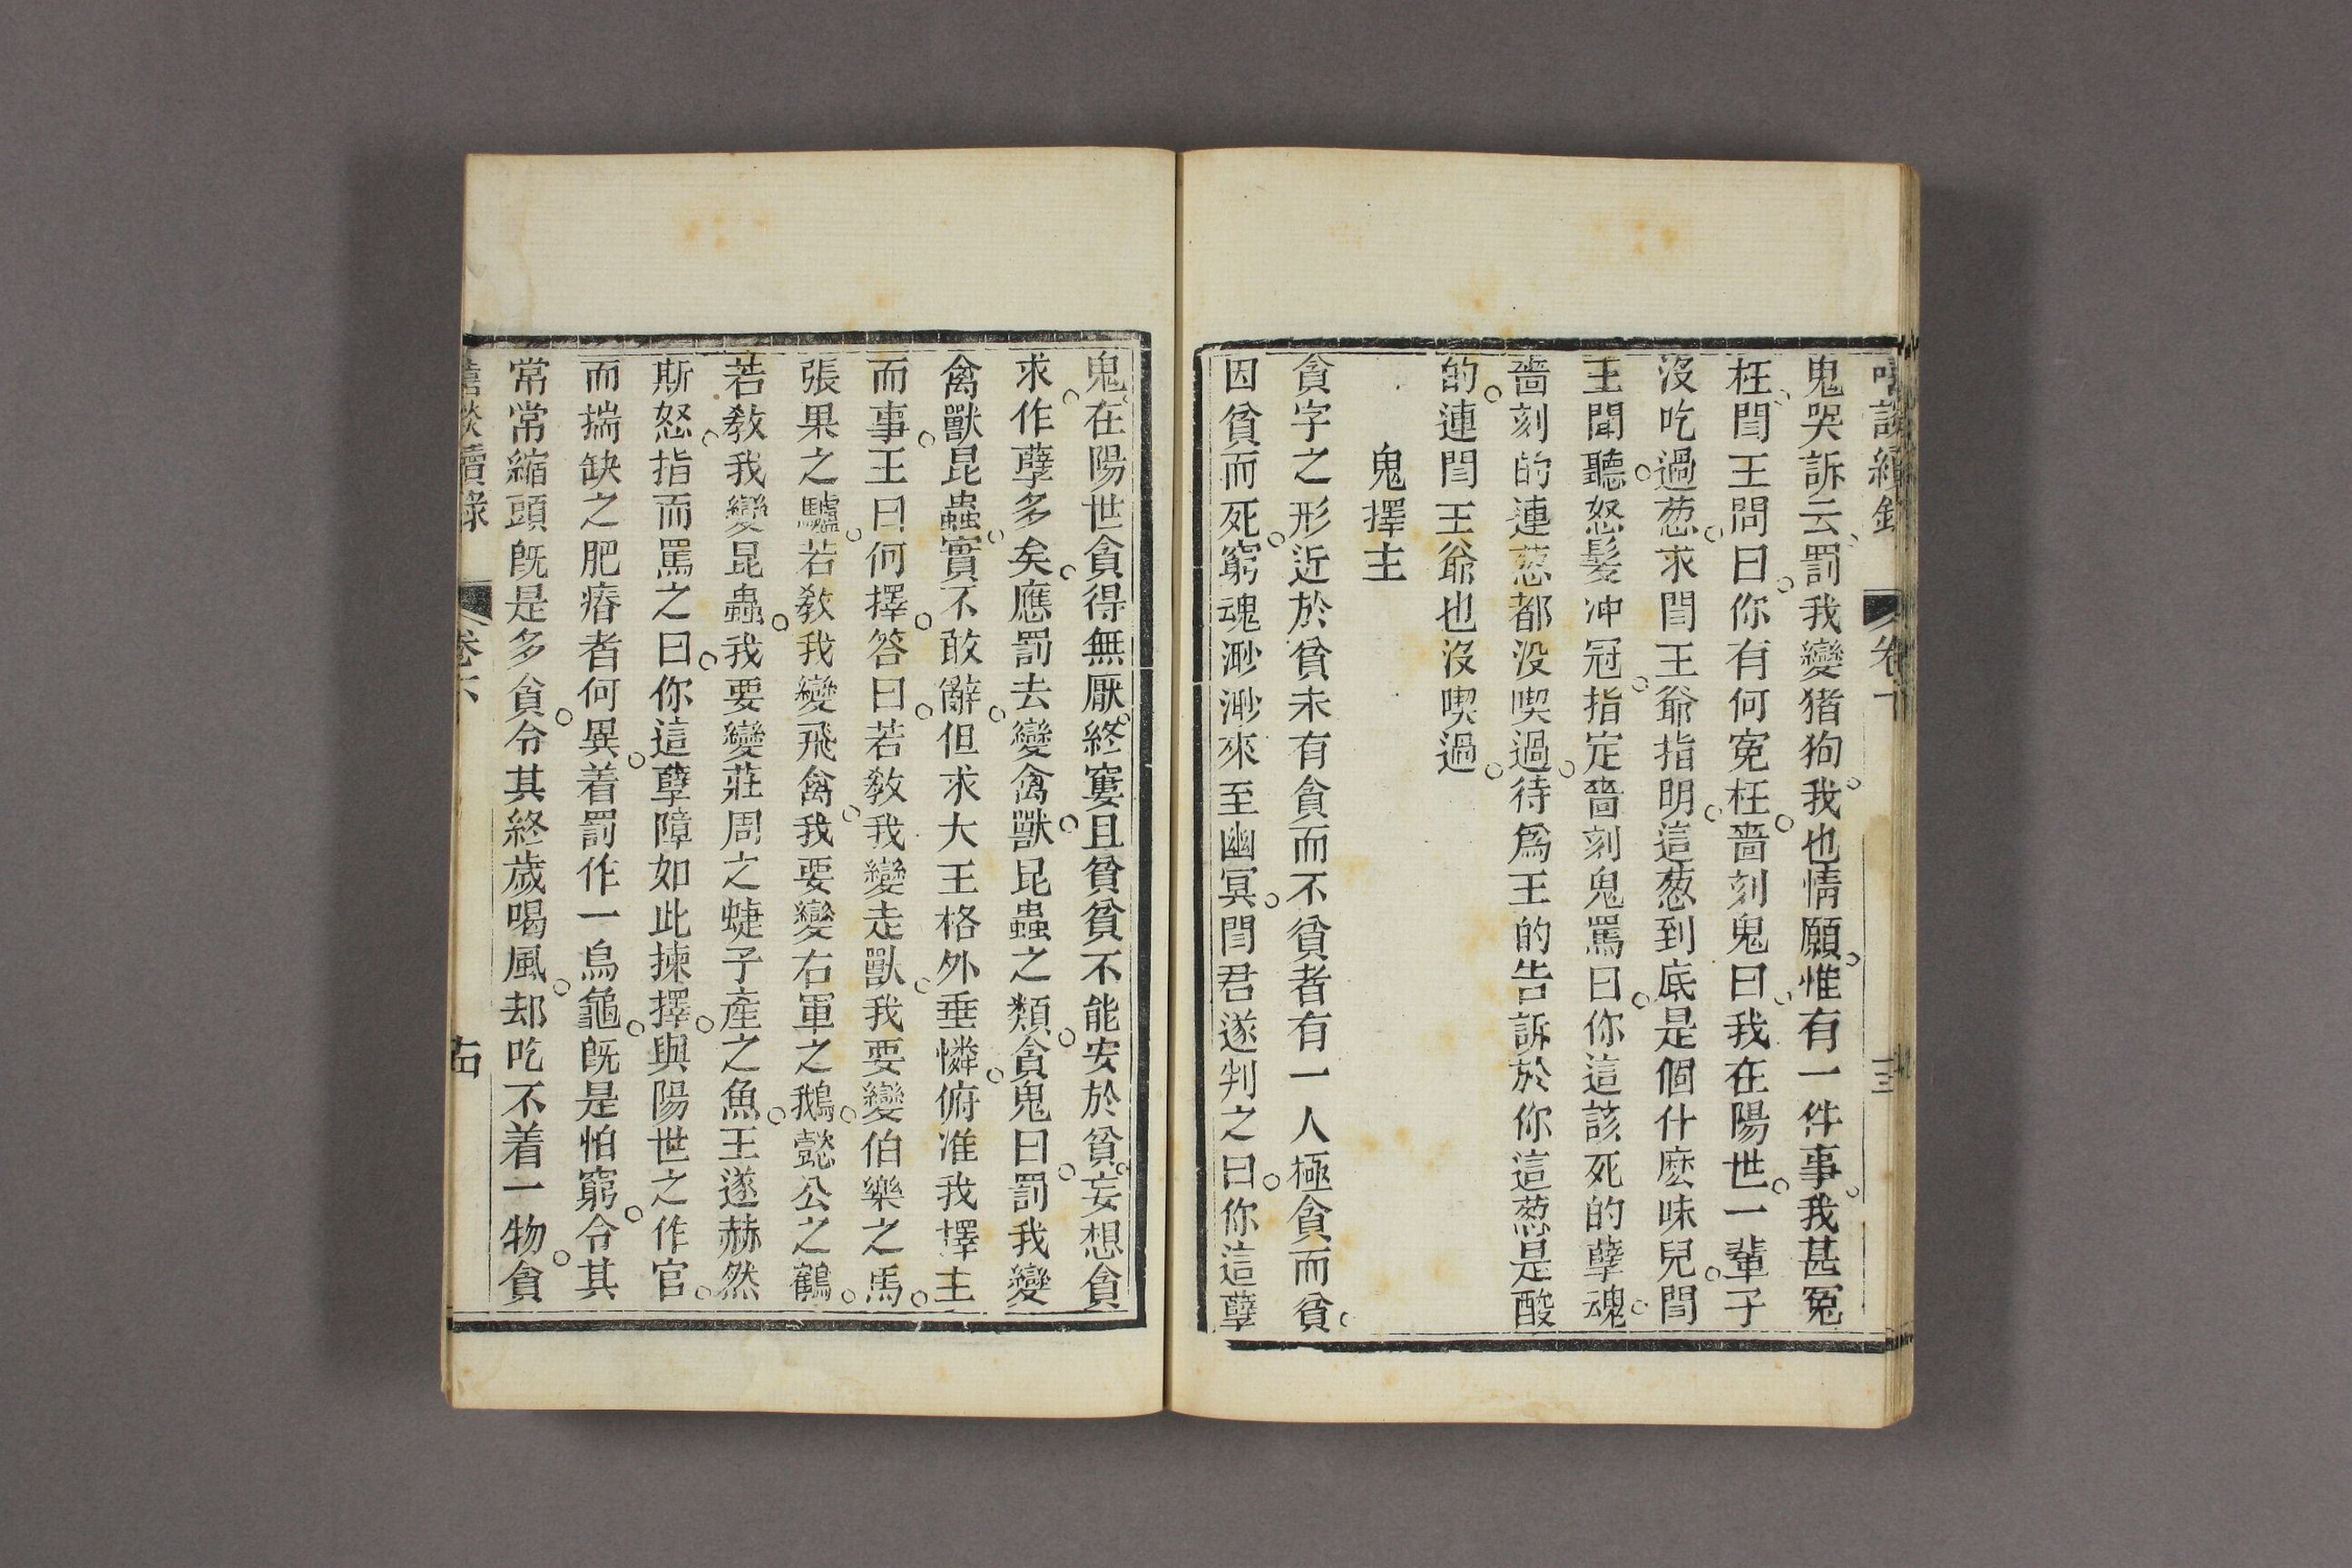 鬼哭訴云罰我變猪狗我也情願惟有一件事我甚冤
枉閻王問曰你有何冤枉嗇刻鬼曰我在陽世一輩子
沒吃過葱求閻王爺指明這葱到底是個什麽味兒閻
王聞聽怒髮冲冠指定嗇刻鬼罵曰你這該死的孽魂
嗇刻的連葱都沒喫過待爲王的告訴於你這葱是酸
的連閻王爺也沒喫過
鬼擇主
貪字之形近於貧未有貪而不貧者有一人極貪而貧
因貧而死窮魂渺渺來至幽冥閻君遂判之曰你這孽
鬼在陽世貪得無厭終窶且貧貧不能安於貧妄想貪
求作孽多矣應罰去變禽獸昆蟲之類貪鬼曰罰我變
禽獸昆蟲實不敢辭但求大王格外垂憐俯准我擇主
而事王曰何擇答曰若教我變走獸我要變伯樂之馬
張果之驢若教我變飛禽我要變右軍之鵝懿公之鶴
若教我變昆蟲我要變莊周之蜨子產之魚王遂赫然
斯怒指而罵之曰你這孽障如此揀擇與陽世之作官
而揣缺之肥瘠者何異着罰作一烏龜旣是怕窮令其
常常縮頭旣是多貪令其終歲喝風却吃不着一物貪
卷六